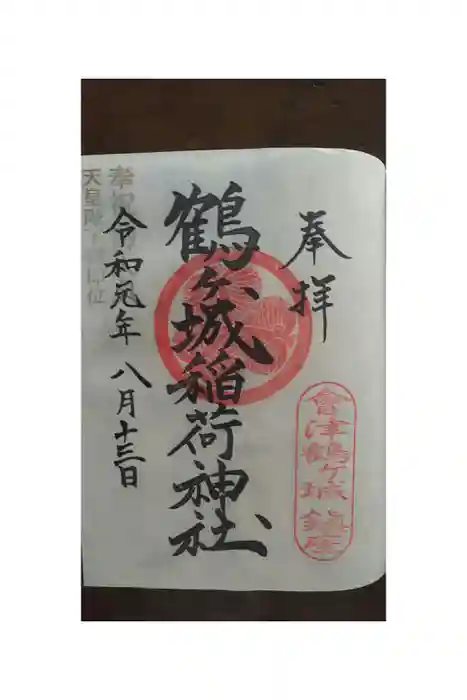 奉拝
會津鶴ヶ城鎮座
鶴ヶ城稲荷神社
令和元年 八月十三日
奉祝
天皇陛下御即位